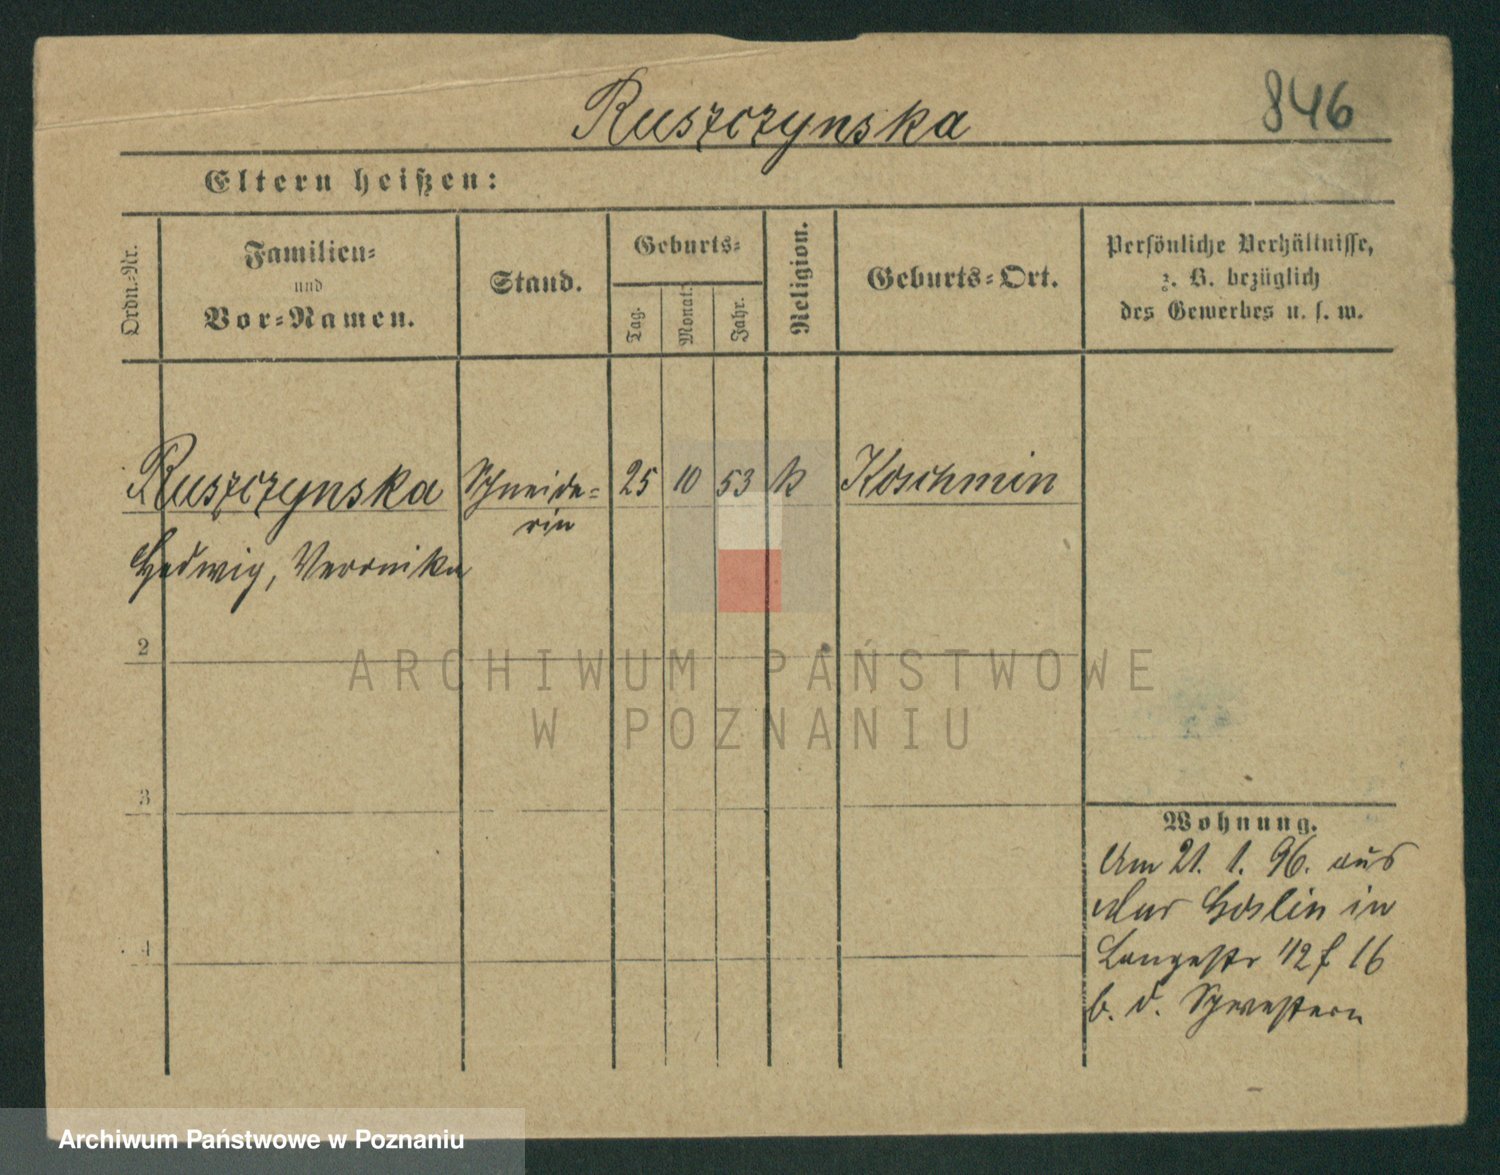 846
Ruszczynska
Eltern heißen:
Ordn.-Nr.
Familien-
und
Vor-Namen.
Stand.
Geburts-
Tag.
Monat.
Jahr.
Religion.
Geburts-Ort.
Persönliche Verhältnisse,
z. B. bezüglich
des Gewerbes u. s. w.
Ruszczynska Schneide- 25 10 53 k Koschmin
rin
Hedwig, Veronika
2
3
4
Wohnung.
Am 21. 1. 96. aus
Mur Goslin in
Langestr 12 16
b. d. Schwestern
ARCHIWUM PAŃSTWOWE
W POZNANIU
Archiwum Państwowe w Poznaniu